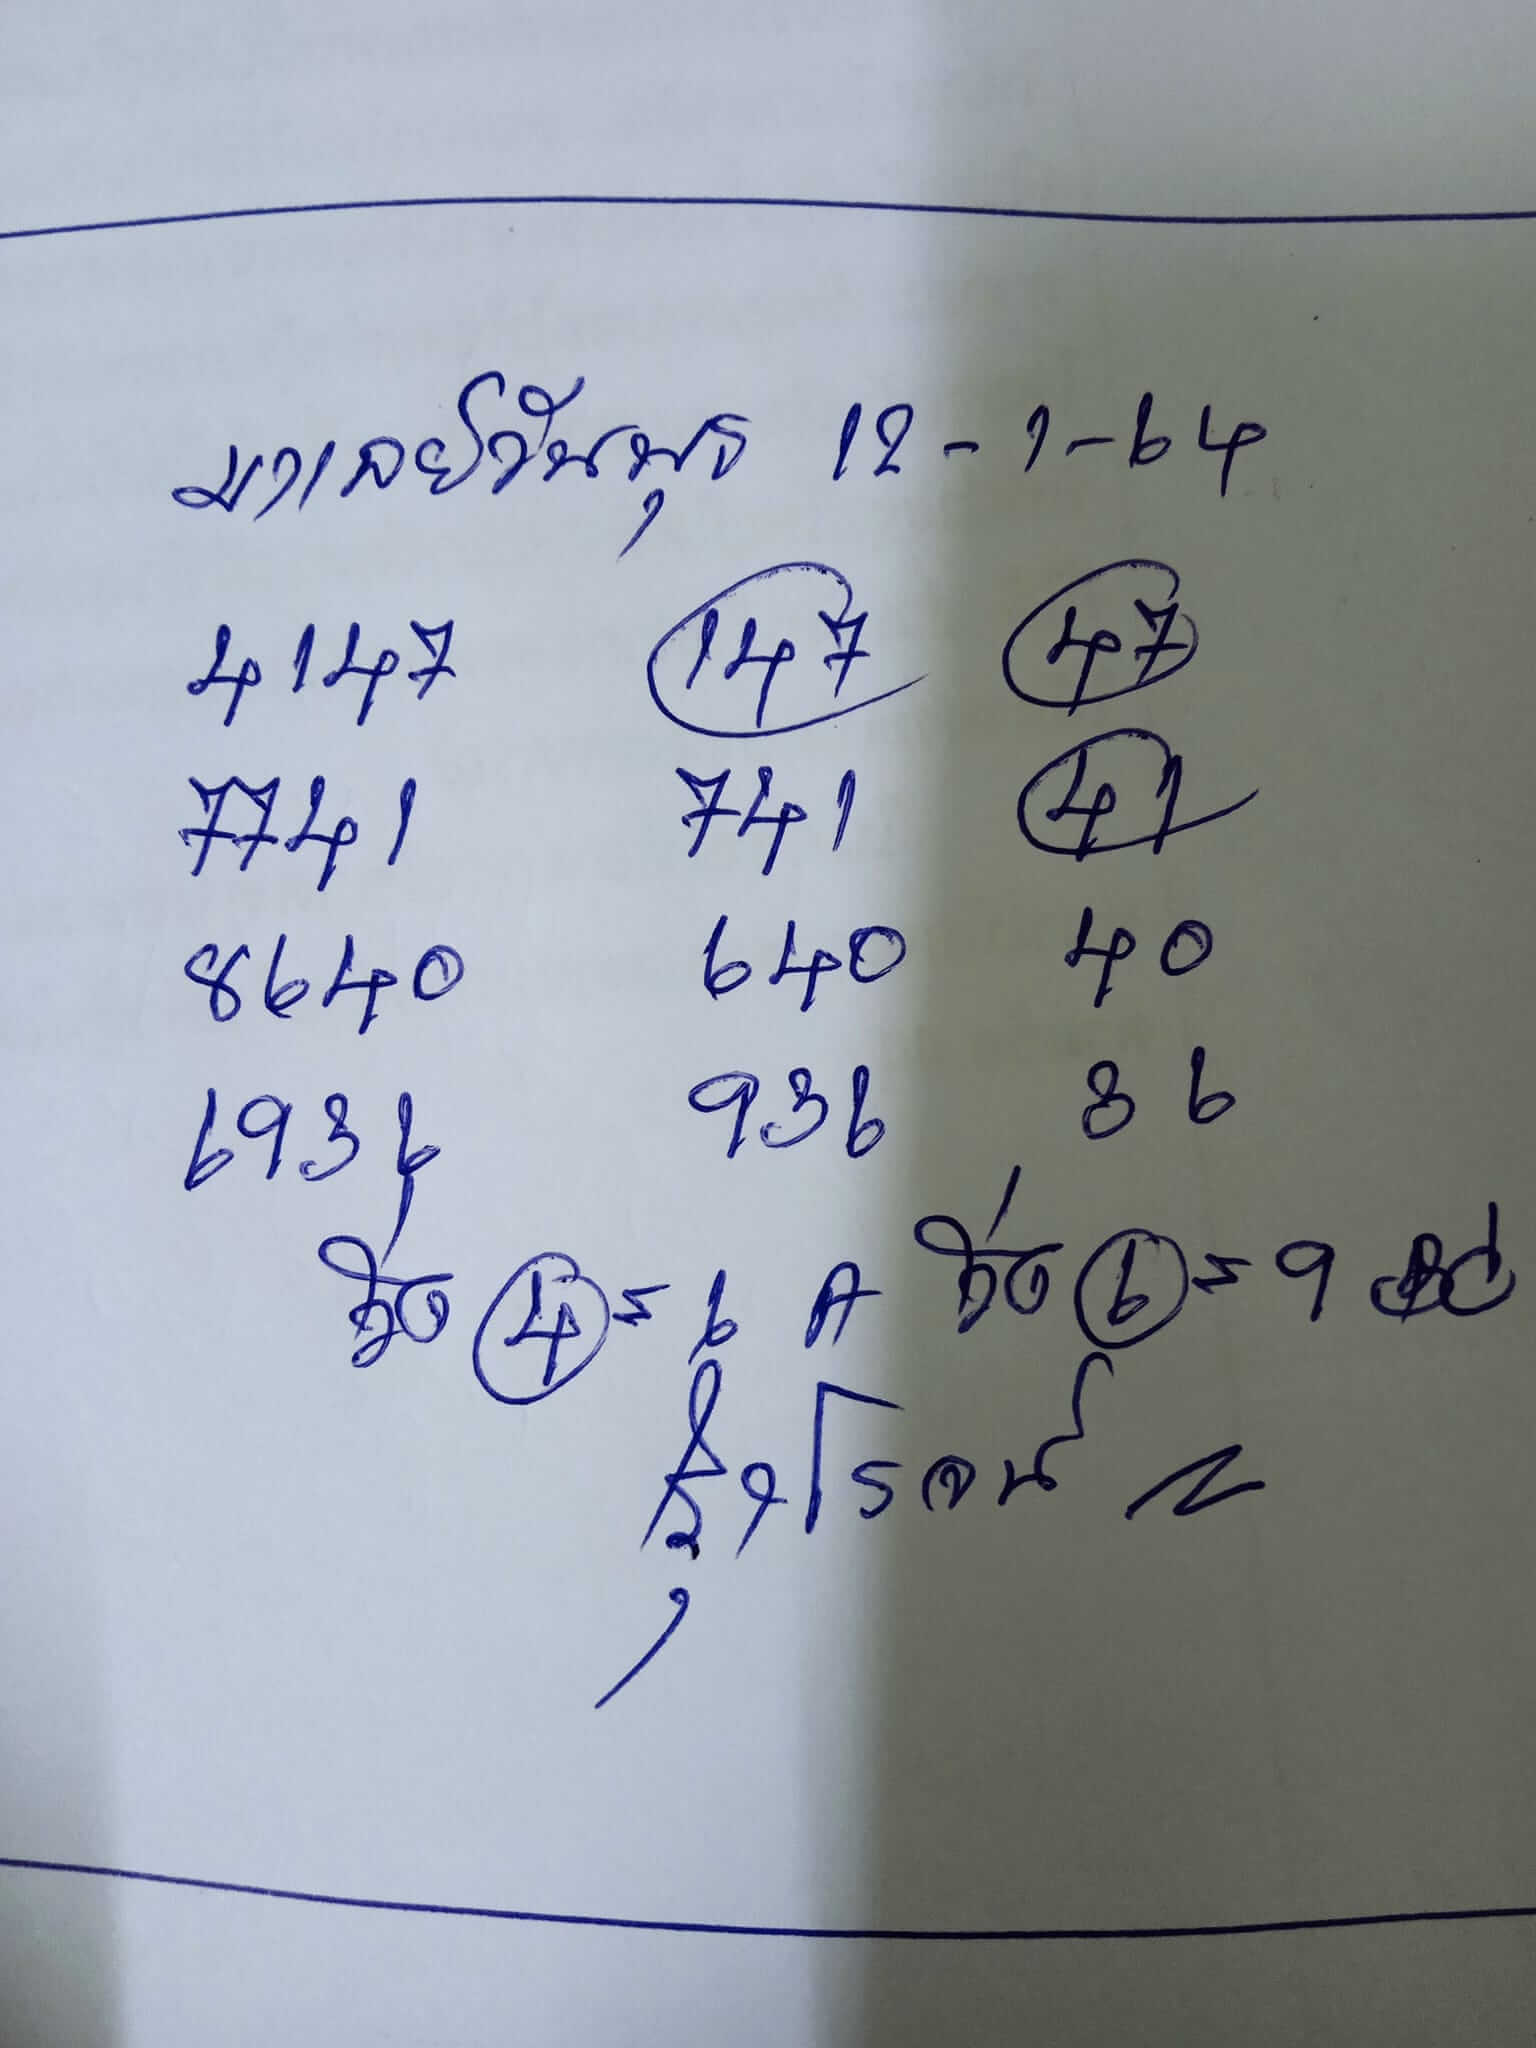 มาเลย์วันพุธ 12-1-64
4147 147 47
7741 741 41
8640 640 40
6936 936 36
วิ่ง 4 = 6 A วิ่ง 6 = 9
โรจน์